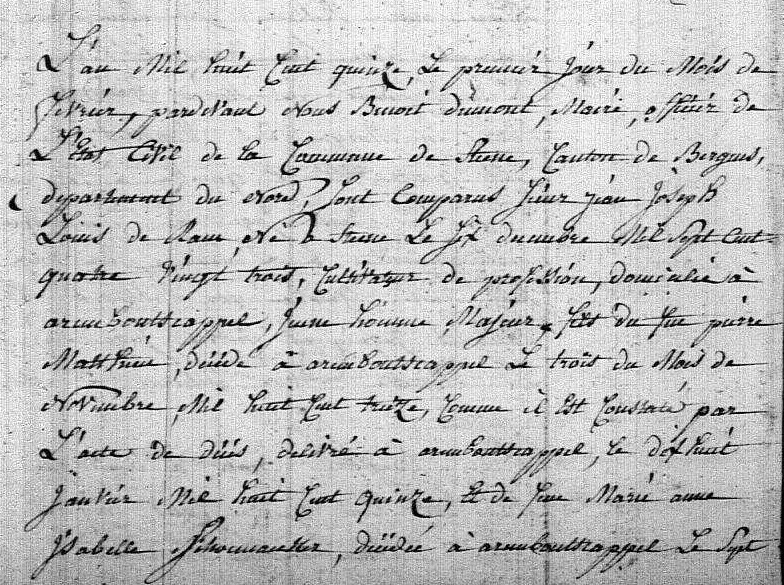 L'an Mil huit Cent quinze, Le premiér jour du Mois de
fevriér, pardevant Nous Benoit dumont, Mairé, officiér de
L'Etat Civil de la Commune de Steene, Canton de Bergues,
departement du Nord, Sont Comparus Siéur jéan Joseph
Louis de Raeu, Né à Steene Le six decembre Mil Sept Cent
quatre Vingt trois, Cultivateur de proféssion, domicilié à
armbouttscappel, Jeune homme Majeur, fils du feu piérre
Matthieu, décédé à armbouttscappel Le trois du Mois de
Novembre, Mil huit Cent treize, Comme il Est Constaté par
L'acte de décés, delivré à armbouttscappel, le dix huit
Janviér Mil huit Cent quinze, Et de feue Marié anne
Isabelle, décédée à armbouttscappel Le Sept